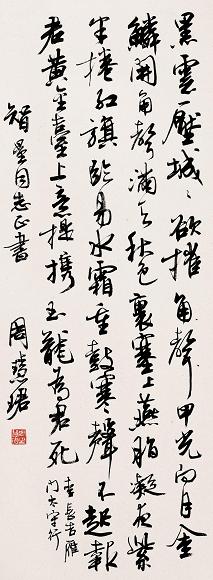 黑雲壓城〻欲摧角聲甲光向月金
鱗開角聲滿天秋色裏塞上燕脂凝夜紫
半捲紅旗臨易水霜重鼓寒聲不起報
君黃金臺上意提攜玉龍為君死
李長吉雁
門太守行
智量同志正書
周慧珺